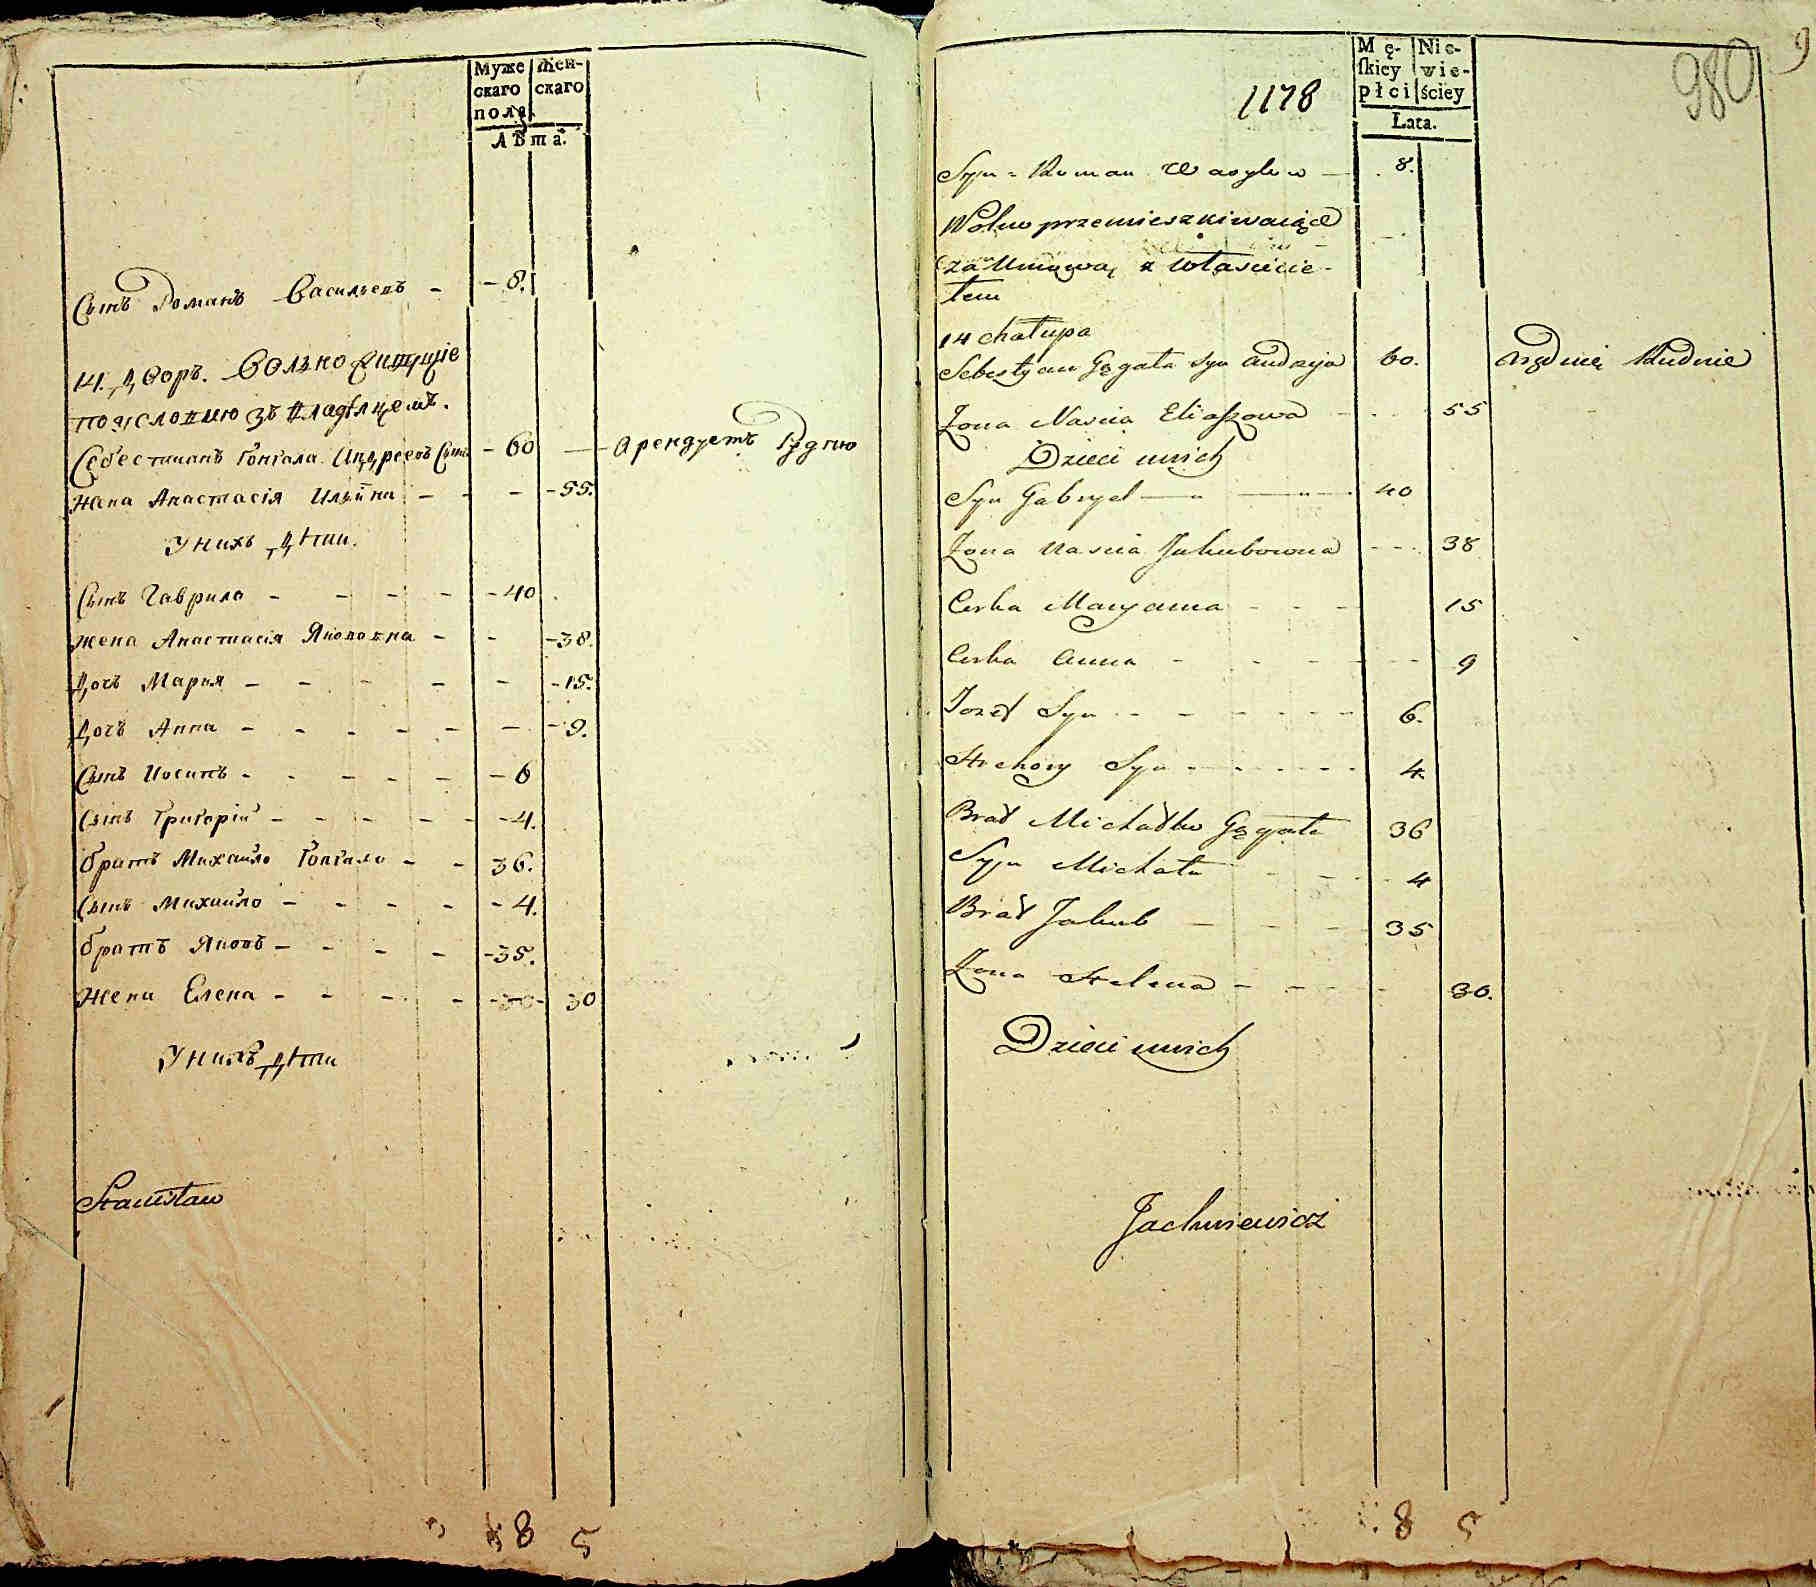 Муже
скаго
пола.
Жен-
скаго
Лѣта.
Сынъ Романъ Васильевъ - - 8.
14. Дворъ. Вольно живущіе
по условию зъ владѣлцемъ.
Себестианъ Гонгала Андреевъ Сынъ - 60 — Арендуетъ Рудню
Жена Анастасія Ильина - - - 55.
У нихъ дѣти.
Сынъ Гаврило - - - - - 40
Жена Анастасія Якововна - - - 38.
Дочь Мария - - - - - - 15.
Дочь Анна - - - - - - - 9.
Сынъ Иосипъ - - - - - - 6
Сынъ Григорій - - - - - - 4.
братъ Михайло Гонгало - - 36.
Сынъ Михайло - - - - - 4.
братъ Яковъ - - - - - 35.
Жена Елена - - - - - 30
У нихъ дѣти
Stanisław
8 5
1178
980
9
Mę-
skiey
płci
Nie-
wie-
ściey
Lata.
Syn - Roman Wasylow — 8.
Wolno przemieszkiwaiące
za umową z właścicie-
lem
14 chałupa
Sebestyan Gęgała syn Andrzyia 60. Rudnie
Żona Nascia Eliaszowa - - 55
Dzieci u nich
Syn Gabryel — — 40
Żona Nascia Jakubowna - - - 38
Corka Maryanna - - - 15
Corka Anna - - - - - 9
Jozef Syn - - - - - - 6.
Hrehory Syn - - - - - - 4.
Brat Michałko Gęgała 36
Syn Michała - - - 4
Brat Jakub - - - 35
Żona Helena - - - - 30.
Dzieci u nich
Jachniewicz
8 5